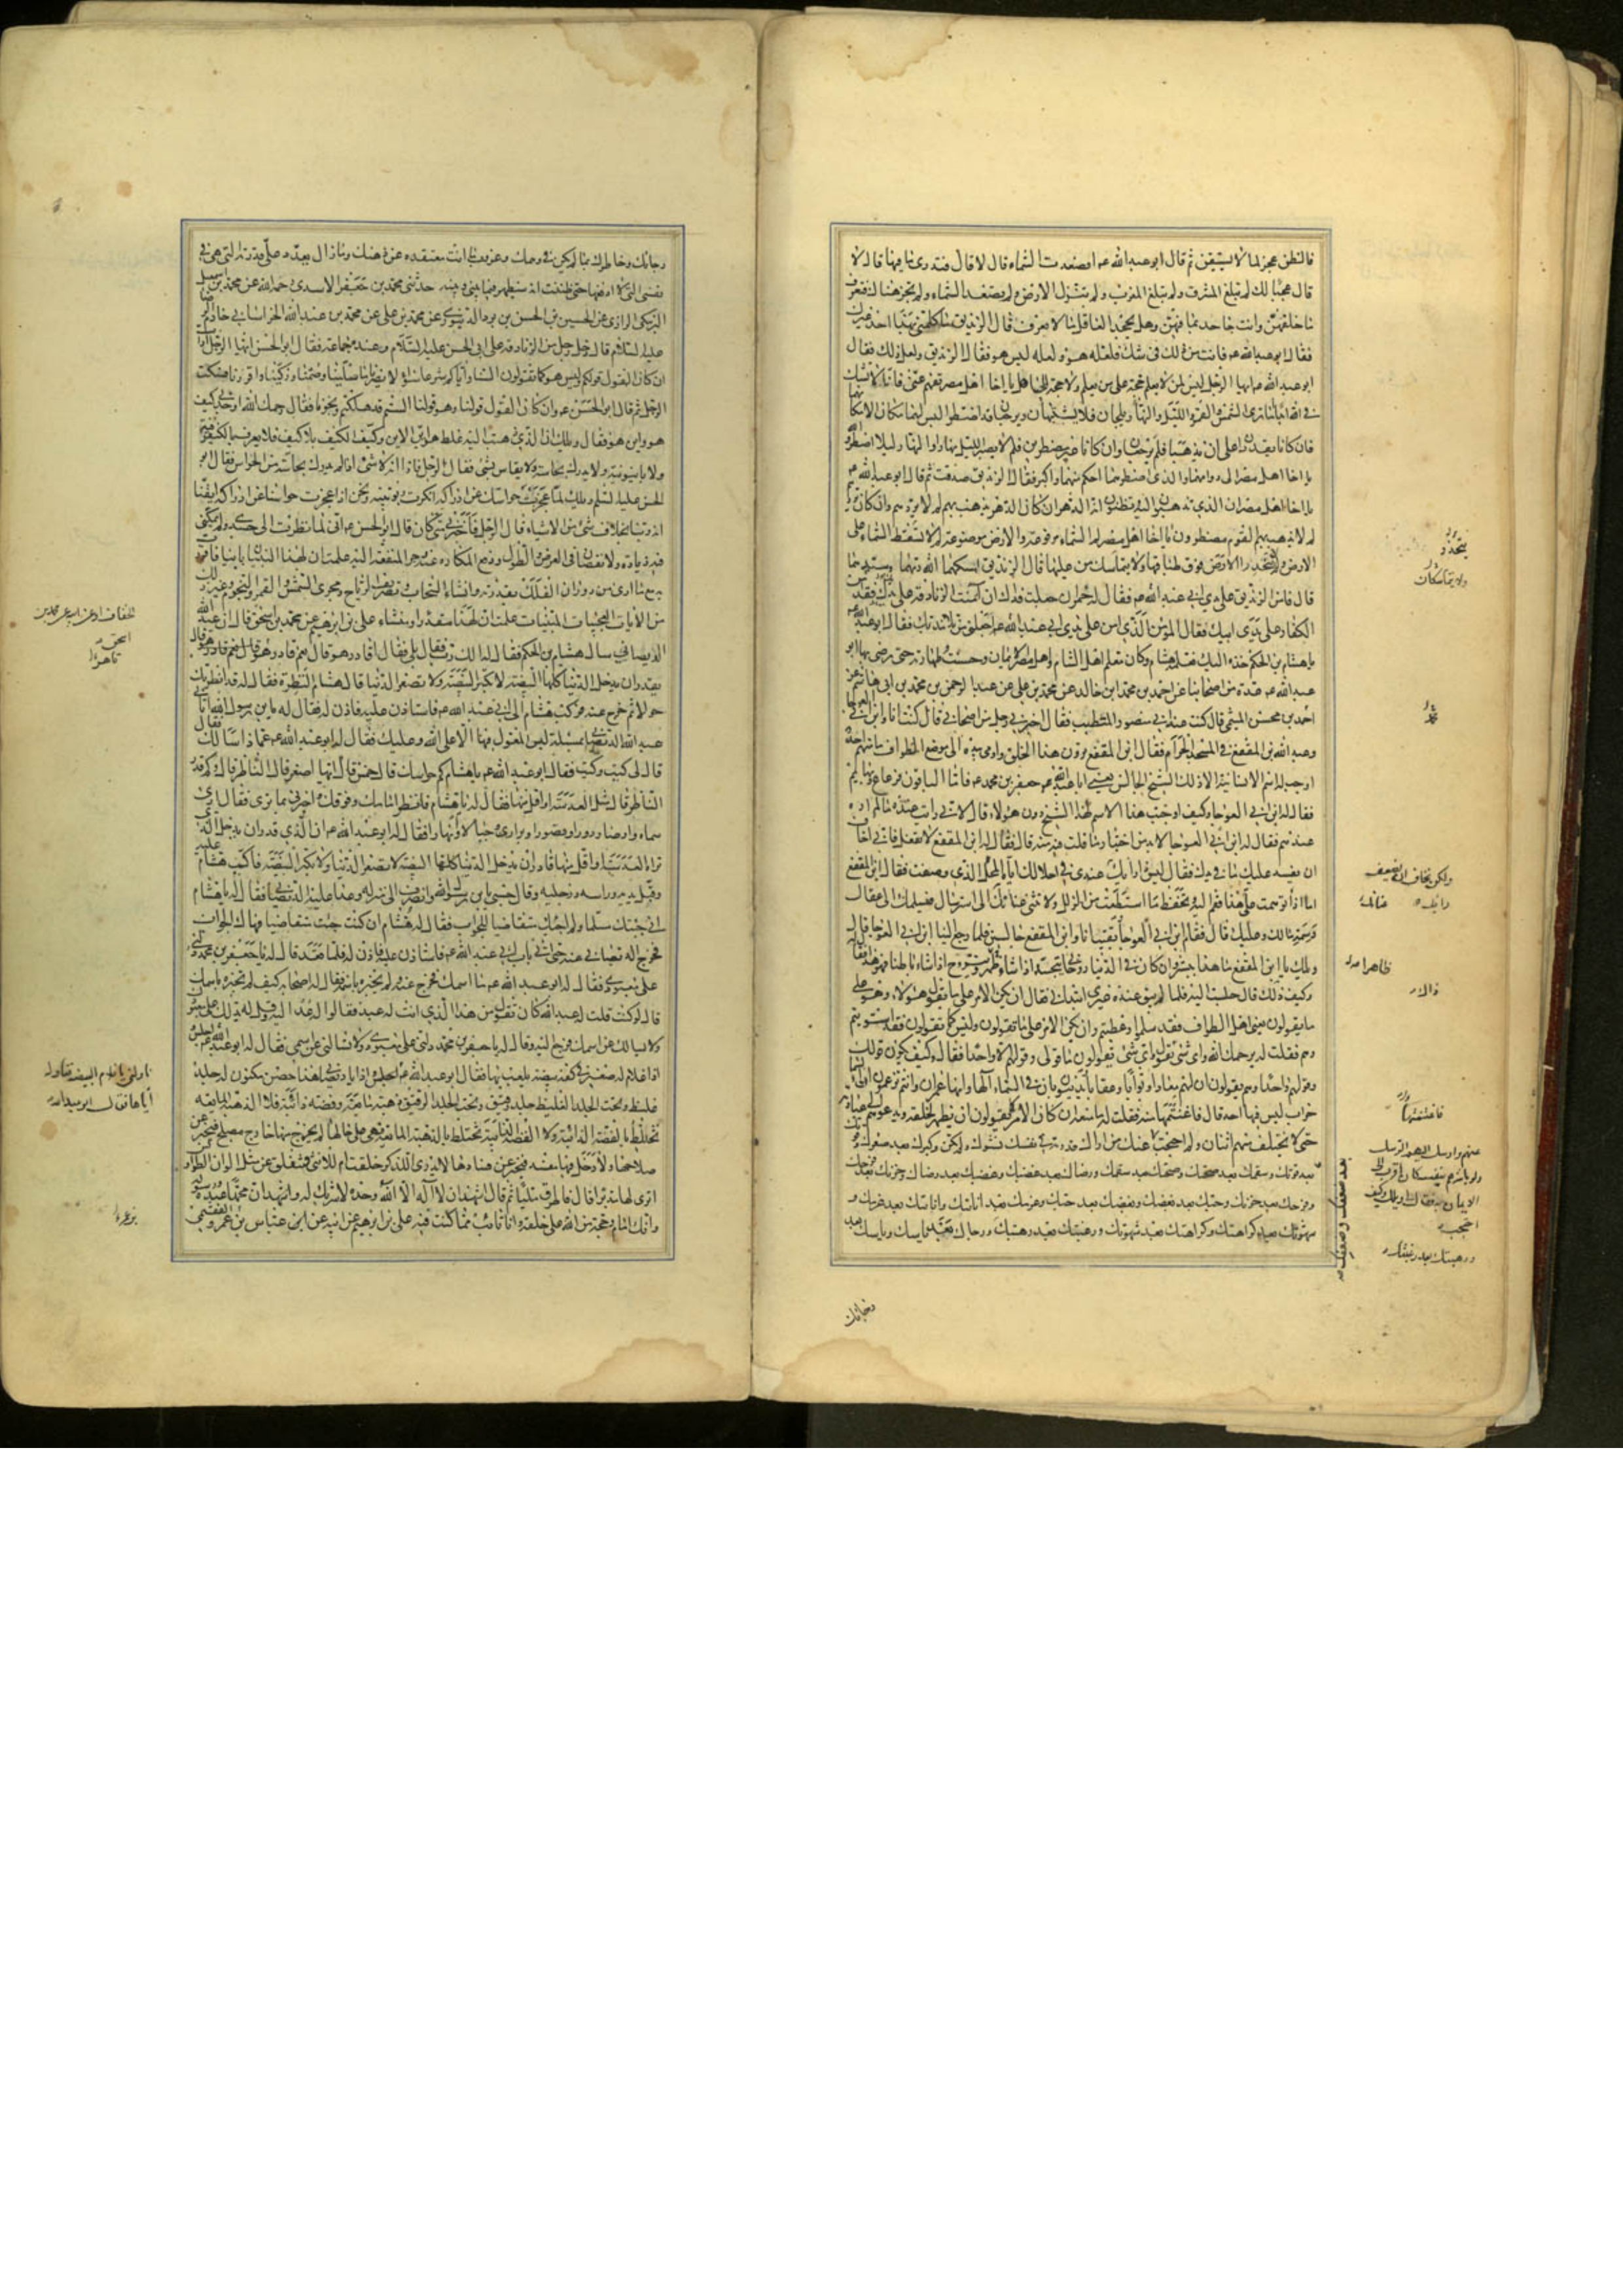 فالظن عجز لما لا يستيقن ثم قال ابو عبد الله عم افصعدت السماء قال لا قال فتدري ما فيها قال لا
قال عجبا لك لم تبلغ المشرق ولم تبلغ المغرب ولم تنزل الارض ولم تصعد السماء ولم تجز هناك فتعرف
ما خلفهن وانت جاحد بما فيهن وهل يجحد العاقل ما لا يعرف قال الزنديق ما كلمني بهذا احد غيرك
فقال ابو عبد الله عم فانت من ذلك في شك فلعله هو ولعله ليس هو فقال الزنديق ولعل ذلك فقال
ابو عبد الله عم ايها الرجل ليس لمن لا يعلم حجة على من يعلم ولا حجة للجاهل يا اخا اهل مصر تفهم عني فانا لا نشك
في الله ابدا اما ترى الشمس والقمر والليل والنهار يلجان فلا يشتبهان ويرجعان قد اضطرا ليس لهما مكان الا مكانهما
فان كانا يقدران على ان يذهبا فلم يرجعان وان كانا غير مضطرين فلم لا يصير الليل نهارا والنهار ليلا اضطرا والله
يا اخا اهل مصر الى دوامهما والذي اضطرهما احكم منهما واكبر فقال الزنديق صدقت ثم قال ابو عبد الله عم
يا اخا اهل مصر ان الذي تذهبون اليه وتظنون انه الدهر ان كان الدهر يذهب بهم لم لا يردهم وان كان يردهم
لم لا يذهب بهم القوم مضطرون يا اخا اهل مصر لم السماء مرفوعة والارض موضوعة لم لا تسقط السماء على
الارض لم لا تنحدر الارض فوق طباقها ولا يتماسكان ولا يتماسك من عليها قال الزنديق امسكهما الله ربهما وسيدهما
قال فامن الزنديق على يدي ابي عبد الله عم فقال له حمران جعلت فداك ان آمنت الزنادقة على يدك فقد آمن
الكفار على يدي ابيك فقال المؤمن الذي امن على يدي ابي عبد الله عم اجعلني من تلامذتك فقال ابو عبد الله عم
يا هشام بن الحكم خذه اليك فعلمه هشام وكان معلم اهل الشام واهل مصر الايمان وحسنت طهارته حتى رضي بها ابو
عبد الله عم عدة من اصحابنا عن احمد بن محمد بن خالد عن محمد بن علي عن عبد الرحمن بن محمد بن ابي هاشم عن
احمد بن محسن الميثمي قال كنت عند ابي منصور المتطبب فقال اخبرني رجل من اصحابي قال كنت انا وابن ابي العوجا
وعبد الله بن المقفع في المسجد الحرام فقال ابن المقفع ترون هذا الخلق واومى بيده الى موضع الطواف ما منهم احد
اوجب له اسم الانسانية الا ذلك الشيخ الجالس يعني ابا عبد الله جعفر بن محمد عم فاما الباقون فرعاع وبهايم
فقال له ابن ابي العوجا وكيف اوجبت هذا الاسم لهذا الشيخ دون هؤلاء قال لاني رايت عنده ما لم اره
عندهم فقال له ابن ابي العوجا لا بد من اختبار ما قلت فيه منه قال فقال له ابن المقفع لا تفعل فاني اخاف
ان يفسد عليك ما في يدك فقال ليس ذا رايك عندي في احلالك اياه المحل الذي وصفت فقال ابن المقفع
اما اذا توهمت علي هذا فقم اليه وتحفظ ما استطعت من الزلل ولا تثني عنانك الى استرسال فيسلمك الى عقال
وسمه ما لك وعليك قال فقام ابن ابي العوجا وبقيت انا وابن المقفع جالسين فلما رجع الينا ابن ابي العوجا قال
ويلك يا ابن المقفع ما هذا ببشر وان كان في الدنيا روحاني يتجسد اذا شاء ظاهرا ويتروح اذا شاء باطنا فهو هذا فقال له
وكيف ذلك قال جلست اليه فلما لم يبق عنده غيري ابتدأني فقال ان يكن الامر على ما يقول هؤلاء وهو على
ما يقولون يعني اهل الطواف فقد سلموا وعطبتم وان يكن الامر على ما تقولون وليس كما تقولون فقد استويتم
وهم فقلت له يرحمك الله واي شئ نقول واي شئ يقولون ما قولي وقولهم الا واحدا فقال وكيف يكون قولك
وقولهم واحدا وهم يقولون ان لهم معادا وثوابا وعقابا ويدينون بان في السماء الها وانها عمران وانتم تزعمون ان السماء
خراب ليس فيها احد قال فاغتنمتها منه فقلت له ما منعه ان كان الامر كما يقولون ان يظهر لخلقه ويدعوهم الى عبادته
حتى لا يختلف منهم اثنان ولم احتجب عنك من اراك قدرته في نفسك نشوك ولم تكن وكبرك بعد صغرك وقوتك
بعد ضعفك وسقمك بعد صحتك وصحتك بعد سقمك ورضاك بعد غضبك وغضبك بعد رضاك وحزنك بعد فرحك
وفرحك بعد حزنك وحبك بعد بغضك وبغضك بعد حبك وعزمك بعد اناتك واناتك بعد عزمك و
شهوتك بعد كراهتك وكراهتك بعد شهوتك ورغبتك بعد رهبتك ورجاك بعد ياسك وياسك بعد
رجائك
ينحدر
ولا يتماسكان
ولكن تخاف
رايك
عنانك
ظاهرا
ذاك
عنهم وارسل اليهم الرسل
ولو باشرهم بنفسه كان اقرب الى
الايمان به فقال لي ويلك وكيف
احتجب
ورهبتك بعد رغبتك
بعد ضعفك وضعفك
رجائك وخاطرك بما لم يكن في وهمك وعزوب ما انت معتقده عن ذهنك وما زال يعدد علي قدرته التي هي في
نفسي التي لا ادفعها حتى ظننت انه سيظهر فيما بيني وبينه حدثني محمد بن جعفر الاسدي رحمه الله عن محمد بن اسمعيل
البرمكي الرازي عن الحسين بن الحسن بن برد الدينوري عن محمد بن علي عن محمد بن عبد الله الخراساني خادم الرضا
عليه السلام قال دخل رجل من الزنادقة على ابي الحسن عليه السلام وعنده جماعة فقال ابو الحسن ايها الرجل ارايت
ان كان القول قولكم وليس هو كما تقولون السنا واياكم شرعا سواء لا يضرنا ما صلينا وصمنا وزكينا واقررنا فسكت
الرجل ثم قال ابو الحسن عم وان كان القول قولنا وهو قولنا الستم قد هلكتم ونجونا فقال رحمك الله اوجدني كيف
هو واين هو فقال ويلك ان الذي ذهبت اليه غلط هو اين الاين وكيف الكيف بلا كيف فلا يعرف بالكيفوفية
ولا باينونية ولا يدرك بحاسة ولا يقاس بشئ فقال الرجل فاذا انه لا شئ اذا لم يدرك بحاسة من الحواس فقال ابو
الحسن عليه السلم ويلك لما عجزت حواسك عن ادراكه انكرت ربوبيته ونحن اذا عجزت حواسنا عن ادراكه ايقنا
انه ربنا بخلاف شئ من الاشياء قال الرجل فاخبرني متى كان قال ابو الحسن عم اني لما نظرت الى جسدي ولم يمكني
فيه زيادة ولا نقصان في العرض والطول ودفع المكاره عنه وجر المنفعة اليه علمت ان لهذا البنيان بانيا فاقررت
به مع ما ارى من دوران الفلك بقدرته وانشاء السحاب وتصريف الرياح ومجرى الشمس والقمر والنجوم وغير ذلك
من الايات العجيبات المبينات علمت ان لهذا مقدرا ومنشئا علي بن ابرهيم عن محمد بن اسحق قال ان عبد الله
الديصاني سال هشام بن الحكم فقال له الك رب فقال بلى فقال اقادر هو قال نعم قادر قاهر قال
يقدر ان يدخل الدنيا كلها البيضة لا تكبر البيضة ولا تصغر الدنيا قال هشام النظرة فقال له قد انظرتك
حولا ثم خرج عنه فركب هشام الى ابي عبد الله عم فاستاذن عليه فاذن له فقال له يا بن رسول الله اتاني
عبد الله الديصاني بمسئلة ليس المعول فيها الا على الله وعليك فقال له ابو عبد الله عم عما ذا سالك
قال لي كيت وكيت فقال ابو عبد الله عم يا هشام كم حواسك قال خمس قال ايها اصغر قال الناظر قال وكم قدر
الناظر قال مثل العدسة او اقل منها فقال له يا هشام فانظر امامك وفوقك واخبرني بما ترى فقال ارى
سماء وارضا ودورا وقصورا وبراري وجبالا وانهارا فقال له ابو عبد الله عم ان الذي قدر ان يدخل الذي
تراه العدسة او اقل منها قادر ان يدخل الدنيا كلها البيضة لا تصغر الدنيا ولا تكبر البيضة فاكب هشام عليه
وقبل يديه وراسه ورجليه وقال حسبي يا بن رسول الله وانصرف الى منزله وغدا عليه الديصاني فقال له يا هشام
اني جئتك مسلما ولم اجئك متقاضيا للجواب فقال له هشام ان كنت جئت متقاضيا فهاك الجواب
فخرج الديصاني عنه حتى اتى باب ابي عبد الله عم فاستاذن عليه فاذن له فلما قعد قال له يا جعفر بن محمد دلني
على معبودي فقال له ابو عبد الله عم ما اسمك فخرج عنه ولم يخبره باسمه فقال له اصحابه كيف لم تخبره باسمك
قال لو كنت قلت له عبد الله كان يقول من هذا الذي انت له عبد فقالوا له عد اليه وقل له يدلك على معبودك
ولا يسالك عن اسمك فرجع اليه وقال له يا جعفر بن محمد دلني على معبودي ولا تسالني عن اسمي فقال له ابو عبد الله عم اجلس
واذا غلام له صغير في كفه بيضة يلعب بها فقال ابو عبد الله عم يا ديصاني هذا حصن مكنون له جلد
غليظ وتحت الجلد الغليظ جلد رقيق وتحت الجلد الرقيق ذهبة مائعة وفضة ذائبة فلا الذهبة المايعة
تختلط بالفضة الذائبة ولا الفضة الذائبة تختلط بالذهبة المايعة فهي على حالها لم يخرج منها خارج مصلح فيخبر عن
صلاحها ولا دخل فيها مفسد فيخبر عن فسادها لا يدرى للذكر خلقت ام للانثى تنفلق عن مثل الوان الطواويس
اترى لها مدبرا قال فاطرق مليا ثم قال اشهد ان لا اله الا الله وحده لا شريك له وان محمدا عبده ورسوله
وانك امام وحجة من الله على خلقه وانا تائب مما كنت فيه علي بن ابرهيم عن ابيه عن عباس بن عمرو الفقيمي
الخفاف او عن ابيه عن محمد بن
اسحق
ناولني يا غلام البيضة فناوله
اياها فقال ابو عبد الله